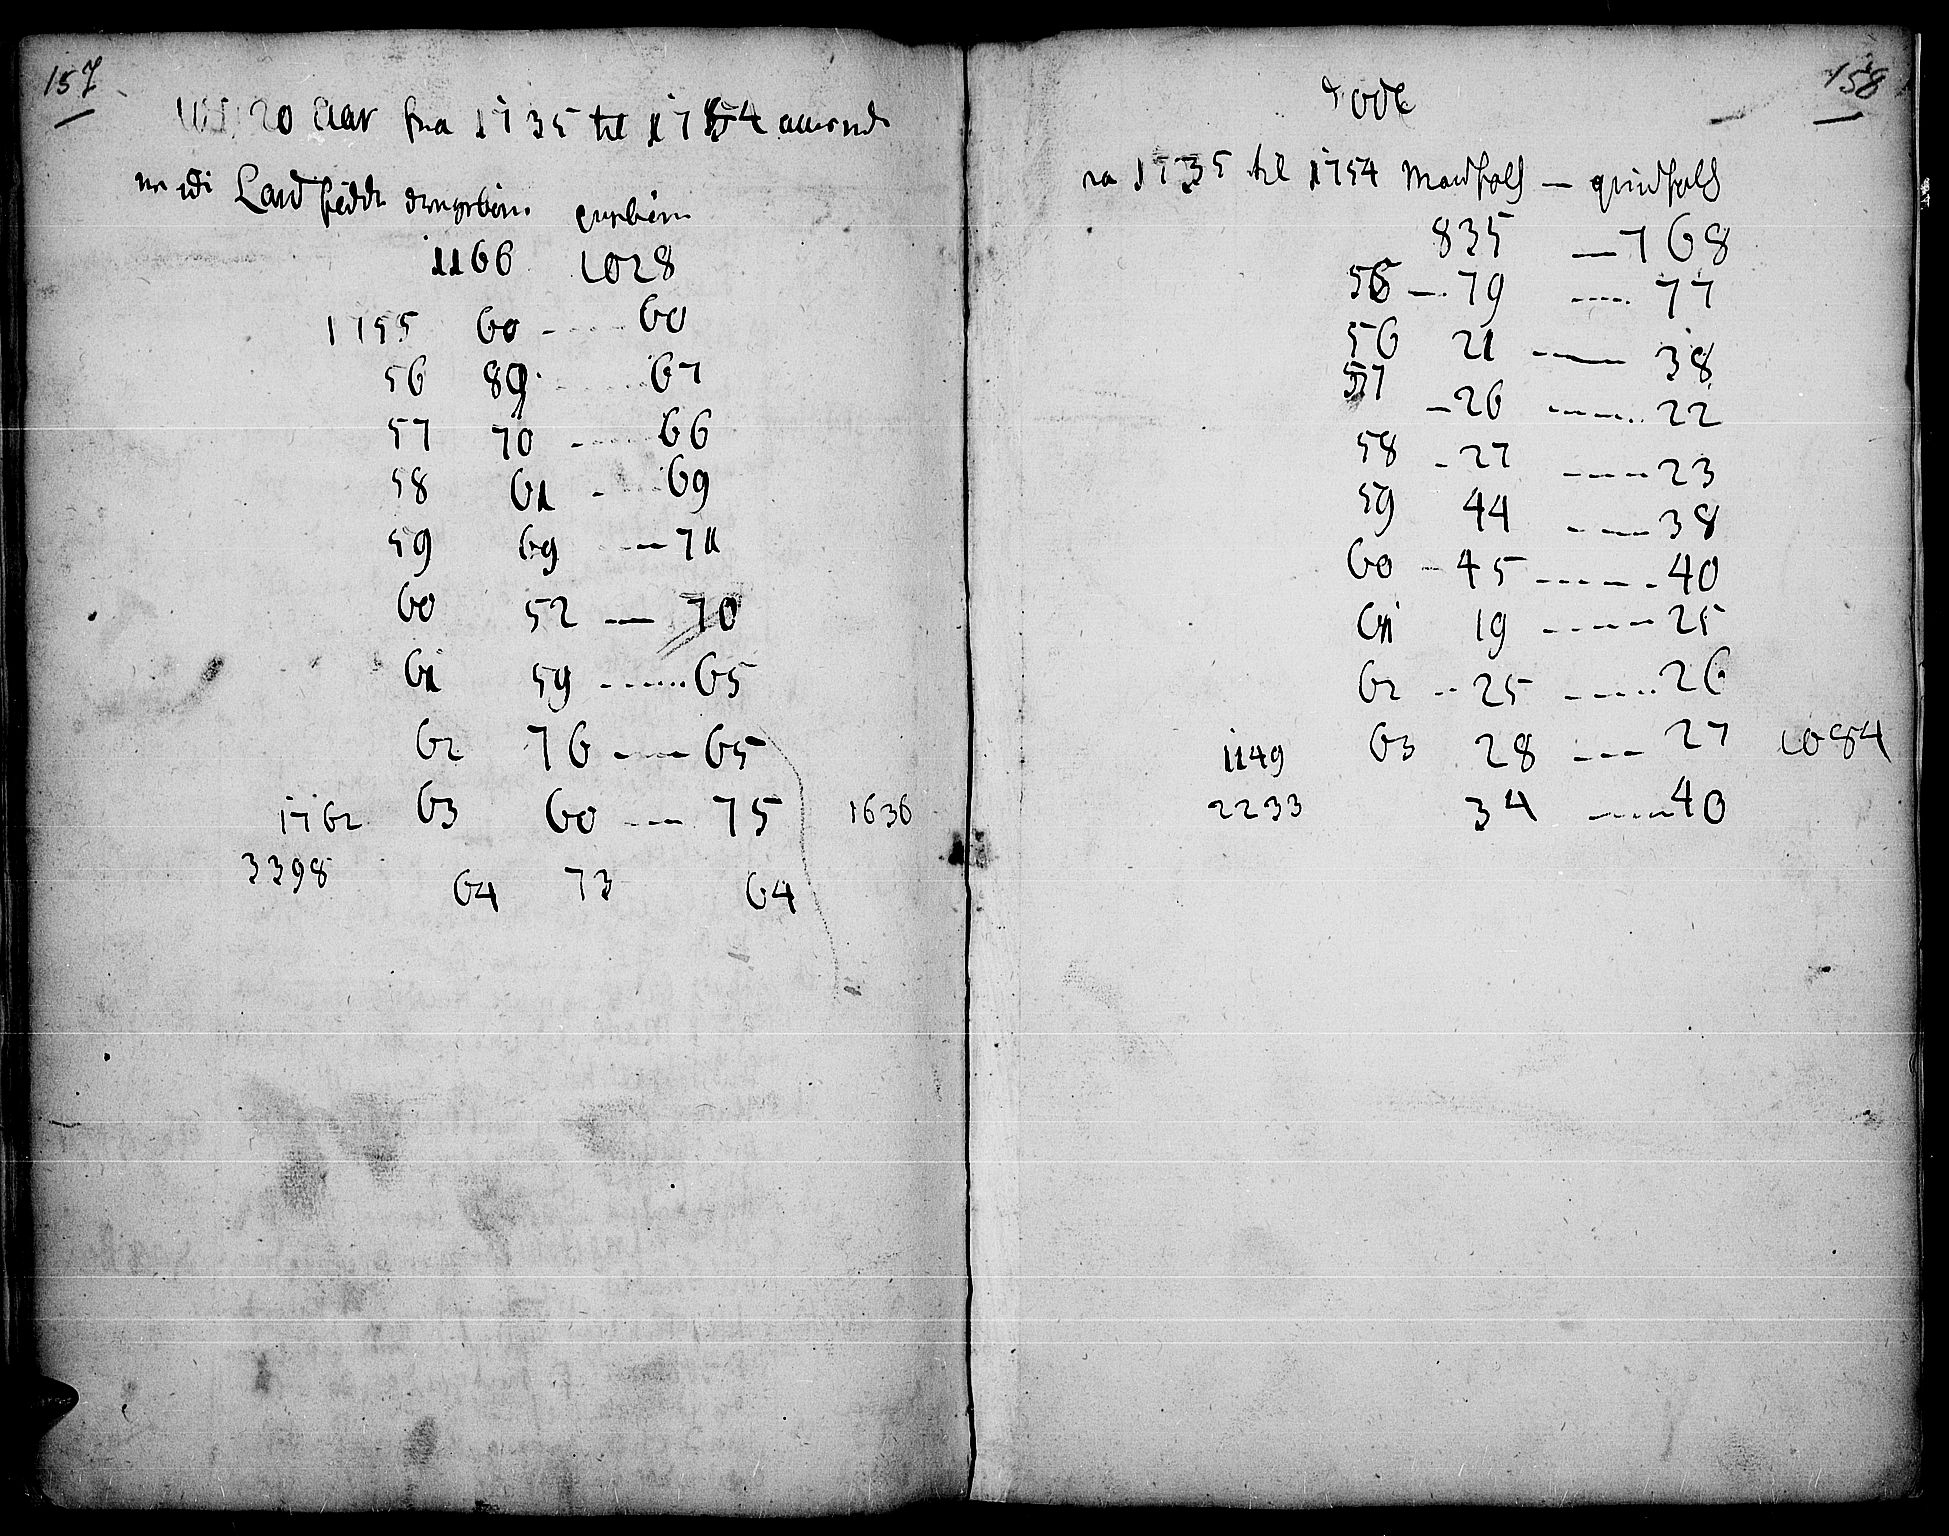 157
20 Aar fra 1735 til 1754
Land fødde drengebørn
1166 1028
1755 60 - ---- 60
56 89 ------ 67
57 70 - ---- 66
58 61 - ---- 69
59 69 --- 71
60 52 -- 70
61 59 ------ 65
62 76 ---- 65
1762 63 60 --- 75 1636
3398
64 73 64
158
døde
1735 til 1754 Mandfolk — qvindfolk
835 — 768
56 -- 79 ---- 77
56 21 ---- 38
57 - 26 ---- 22
58 - 27 ---- 23
59 44 ---- 38
60 - 45 ----- 40
61 19 ----- 25
62 -- 25 ----- 26
1149 63 28 --- 27 1084
2233 34 ----- 40